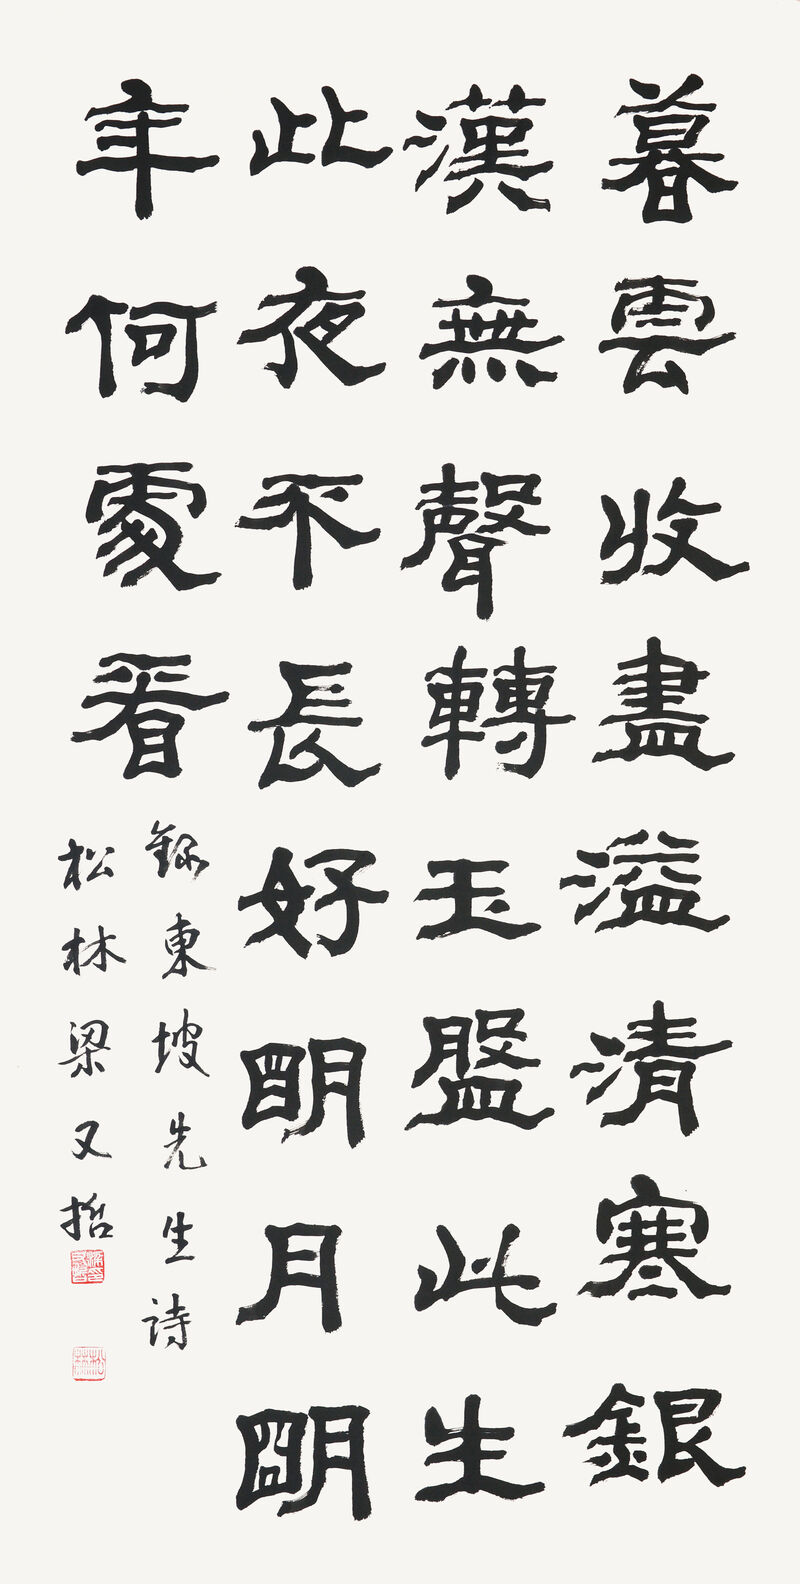 暮雲收盡溢清寒銀
漢無聲轉玉盤此生
此夜不長好明月明
年何處看
錄東坡先生詩
松林梁又哲